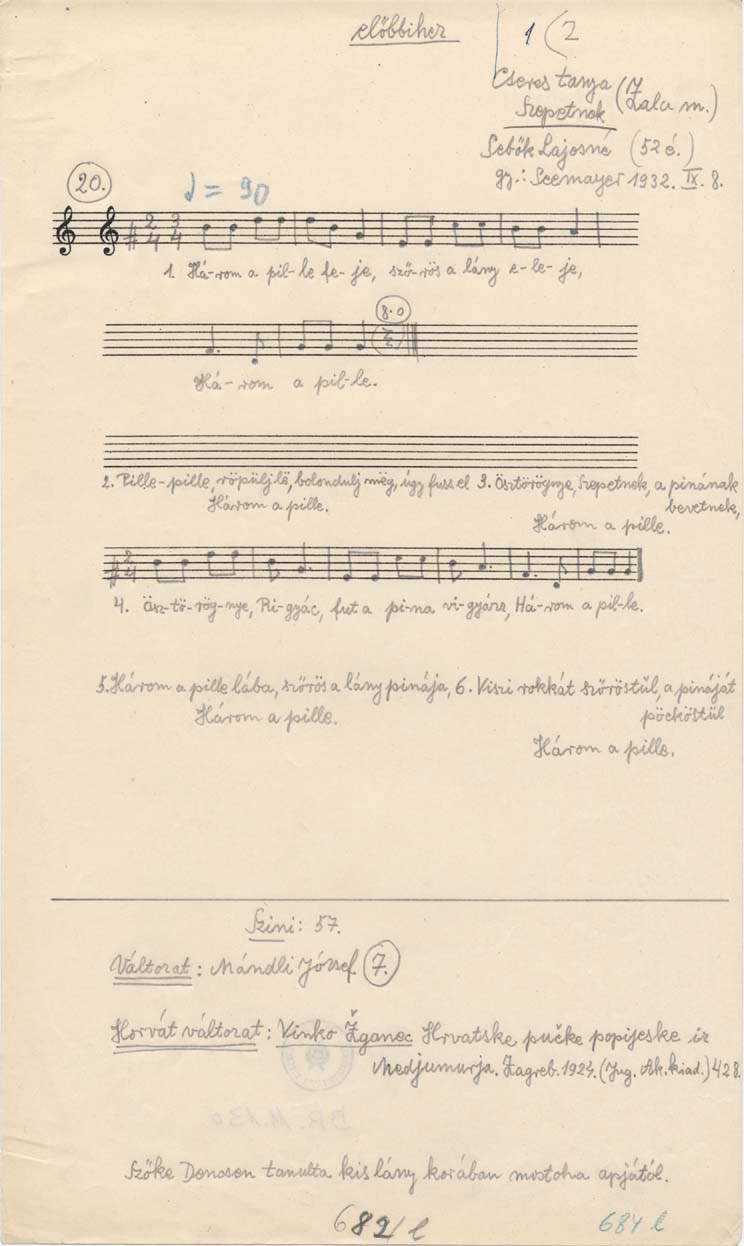 előbbihez
1 ( 2
Cseres tanya
Szepetnek (Zala m.)
Sebők Lajosné (52 é.)
gy.: Seemayer 1932. IX. 8.
20.
♩ = 90
2/4 3/4
1. Há-rom a pil-le fe-je, sző-rös a lány e-le-je,
8.0
Há-rom a pil-le.
2. Pille-pille, röpülj lë, bolondulj mëg, úgy fuss el 3. Ösztörögnye, Szepetnek, a pinának
Három a pille. bevetnek,
Három a pille.
2/4
4. Ösz-tö-rög-nye, Ri-gyác, fut a pi-na vi-gyázz, Há-rom a pil-le.
5. Három a pille lába, szőrös a lány pinája, 6. Viszi rokkát szöröstül, a pináját
Három a pille. pöcköstül
Három a pille.
Szini: 57.
Változat: Mándli József 7.
Horvát változat: Vinko Žganec Hrvatske pučke popijeske iz
Medjumurja. Zagreb. 1924. (Jug. Ak. kiad.) 428.
BR. M. 130
Szőke Dencsen tanulta kis lány korában mostoha apjától.
684 l